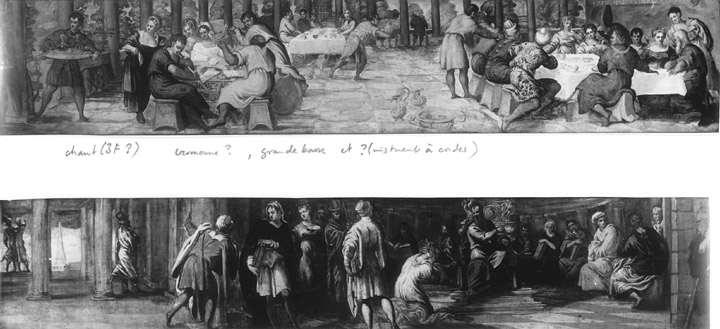 chant (3F ?) cromorne ? , grande basse et ? (instrument à cordes)